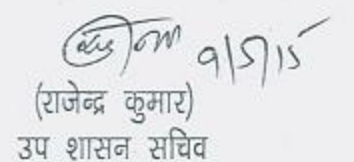 9/5/15
(राजेन्द्र कुमार)
उप शासन सचिव